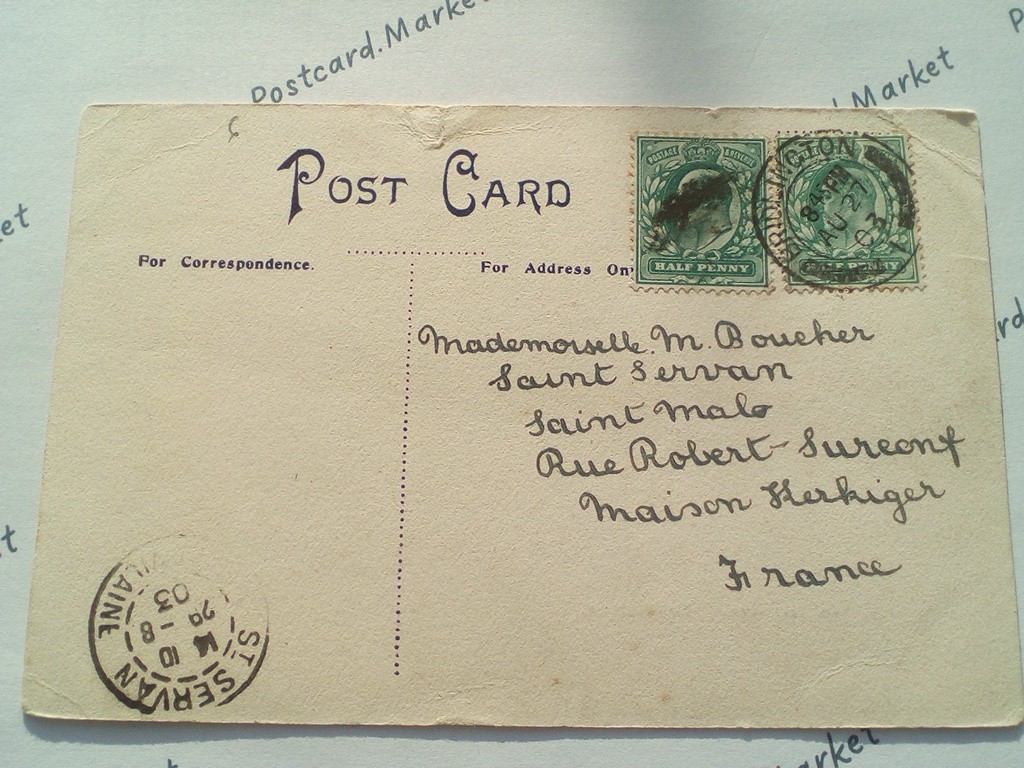 Postcard.Market
Market
POST CARD
For Correspondence.
For Address On
POSTAGE
HALF PENNY
HALF PENNY
BRIDLINGTON
8 45 PM
AU 27
03
Mademoiselle. M. Boucher
Saint Servan
Saint Malo
Rue Robert-Sureonf
Maison Herkiger
France
ST SERVAN
10
29 - 8
03
VILAINE
arket